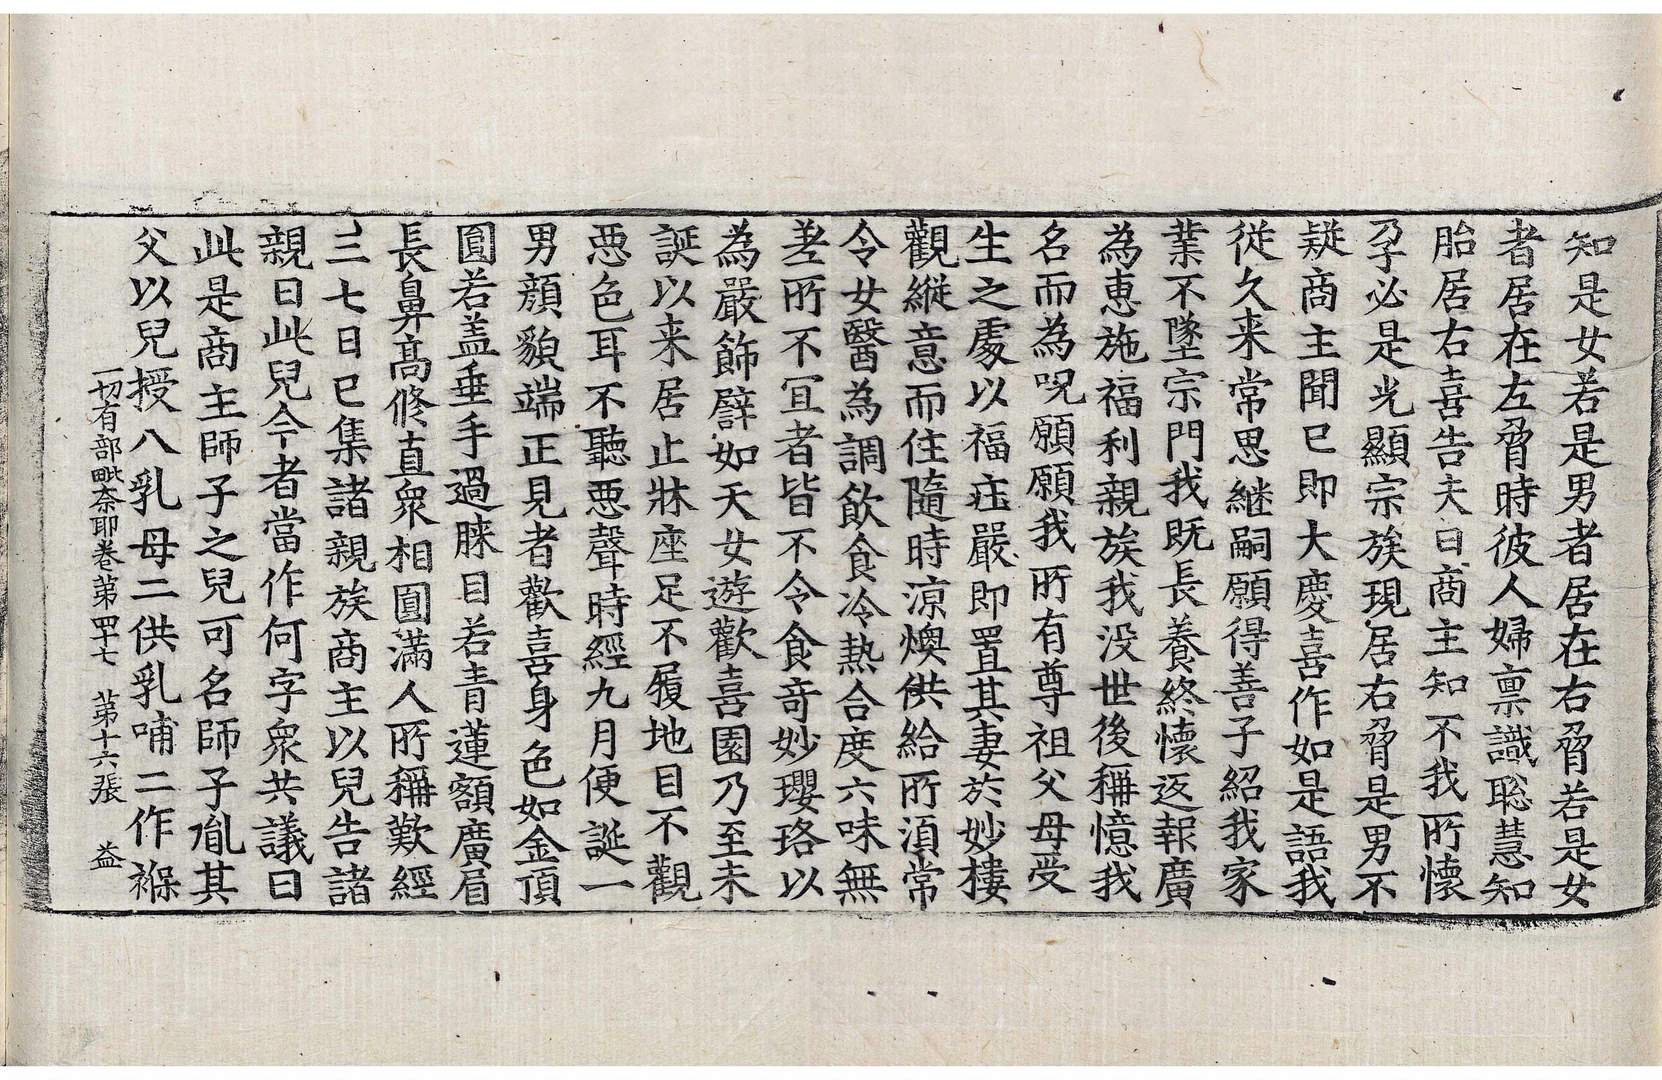 知是女若是男者居在右脅若是女
者居在左脅時彼人婦禀識聡慧知
胎居右喜告夫曰商主知不我所懷
孕必是光顯宗族現居右脅是男不
疑商主聞已即大慶喜作如是語我
從久来常思継嗣願得善子紹我家
業不墜宗門我既長養終懷返報廣
為恵施福利親族我没世後稱憶我
名而為呪願願我所有尊祖父母受
生之處以福庄嚴即置其妻於妙樓
觀縱意而住隨時涼燠供給所湏常
令女醫為調飲食冷熱合度六味無
差所不冝者皆不令食奇妙瓔珞以
為嚴飾譬如天女遊歡喜園乃至未
誕以来居止牀座足不履地目不觀
惡色耳不聽惡聲時經九月便誕一
男顔貌端正見者歡喜身色如金頂
圓若盖垂手過膝目若青蓮額廣眉
長鼻髙修直衆相圓滿人所稱歎經
三七日已集諸親族商主以兒告諸
親曰此兒今者當作何字衆共議曰
此是商主師子之兒可名師子胤其
父以兒授八乳母二供乳哺二作褓
一切有部毗奈耶卷第四十七 第十六張 益